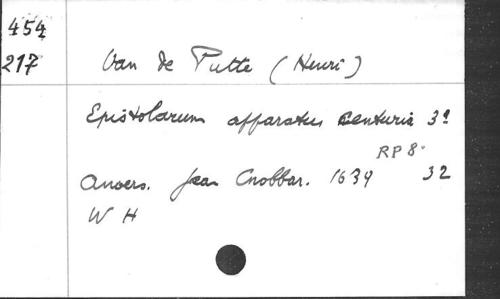 454
217
Van de Putte (Henri)
Epistolarum apparatus centuria 3a
RP 8.
Anvers. Jean Cnobbar. 1639 32
W H